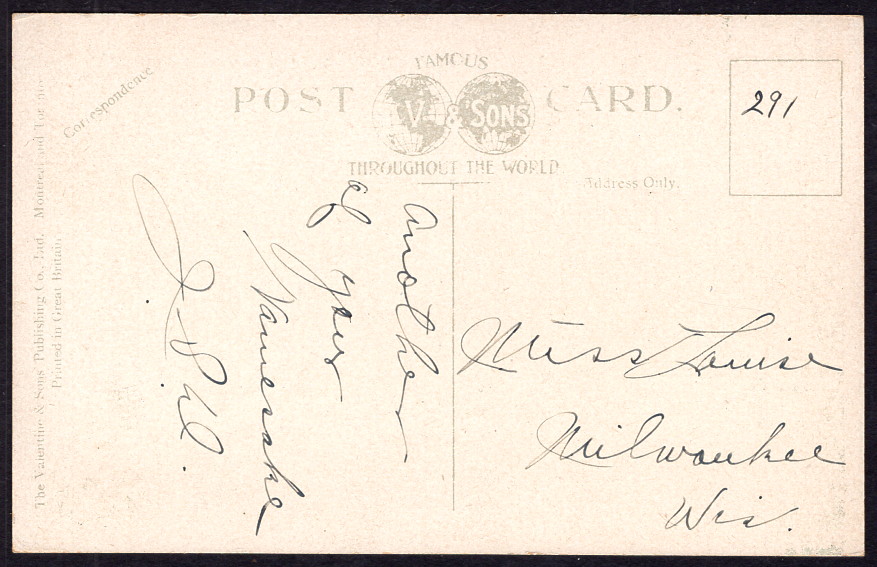 FAMOUS
POST CARD.
V. & SONS
THROUGHOUT THE WORLD
Correspondence
Address Only.
291
The Valentine & Sons Publishing Co., Ltd. Montreal and Toronto
Printed in Great Britain.
Another
of your
Namesake
Miss Louise
Milwaukee
Wis.